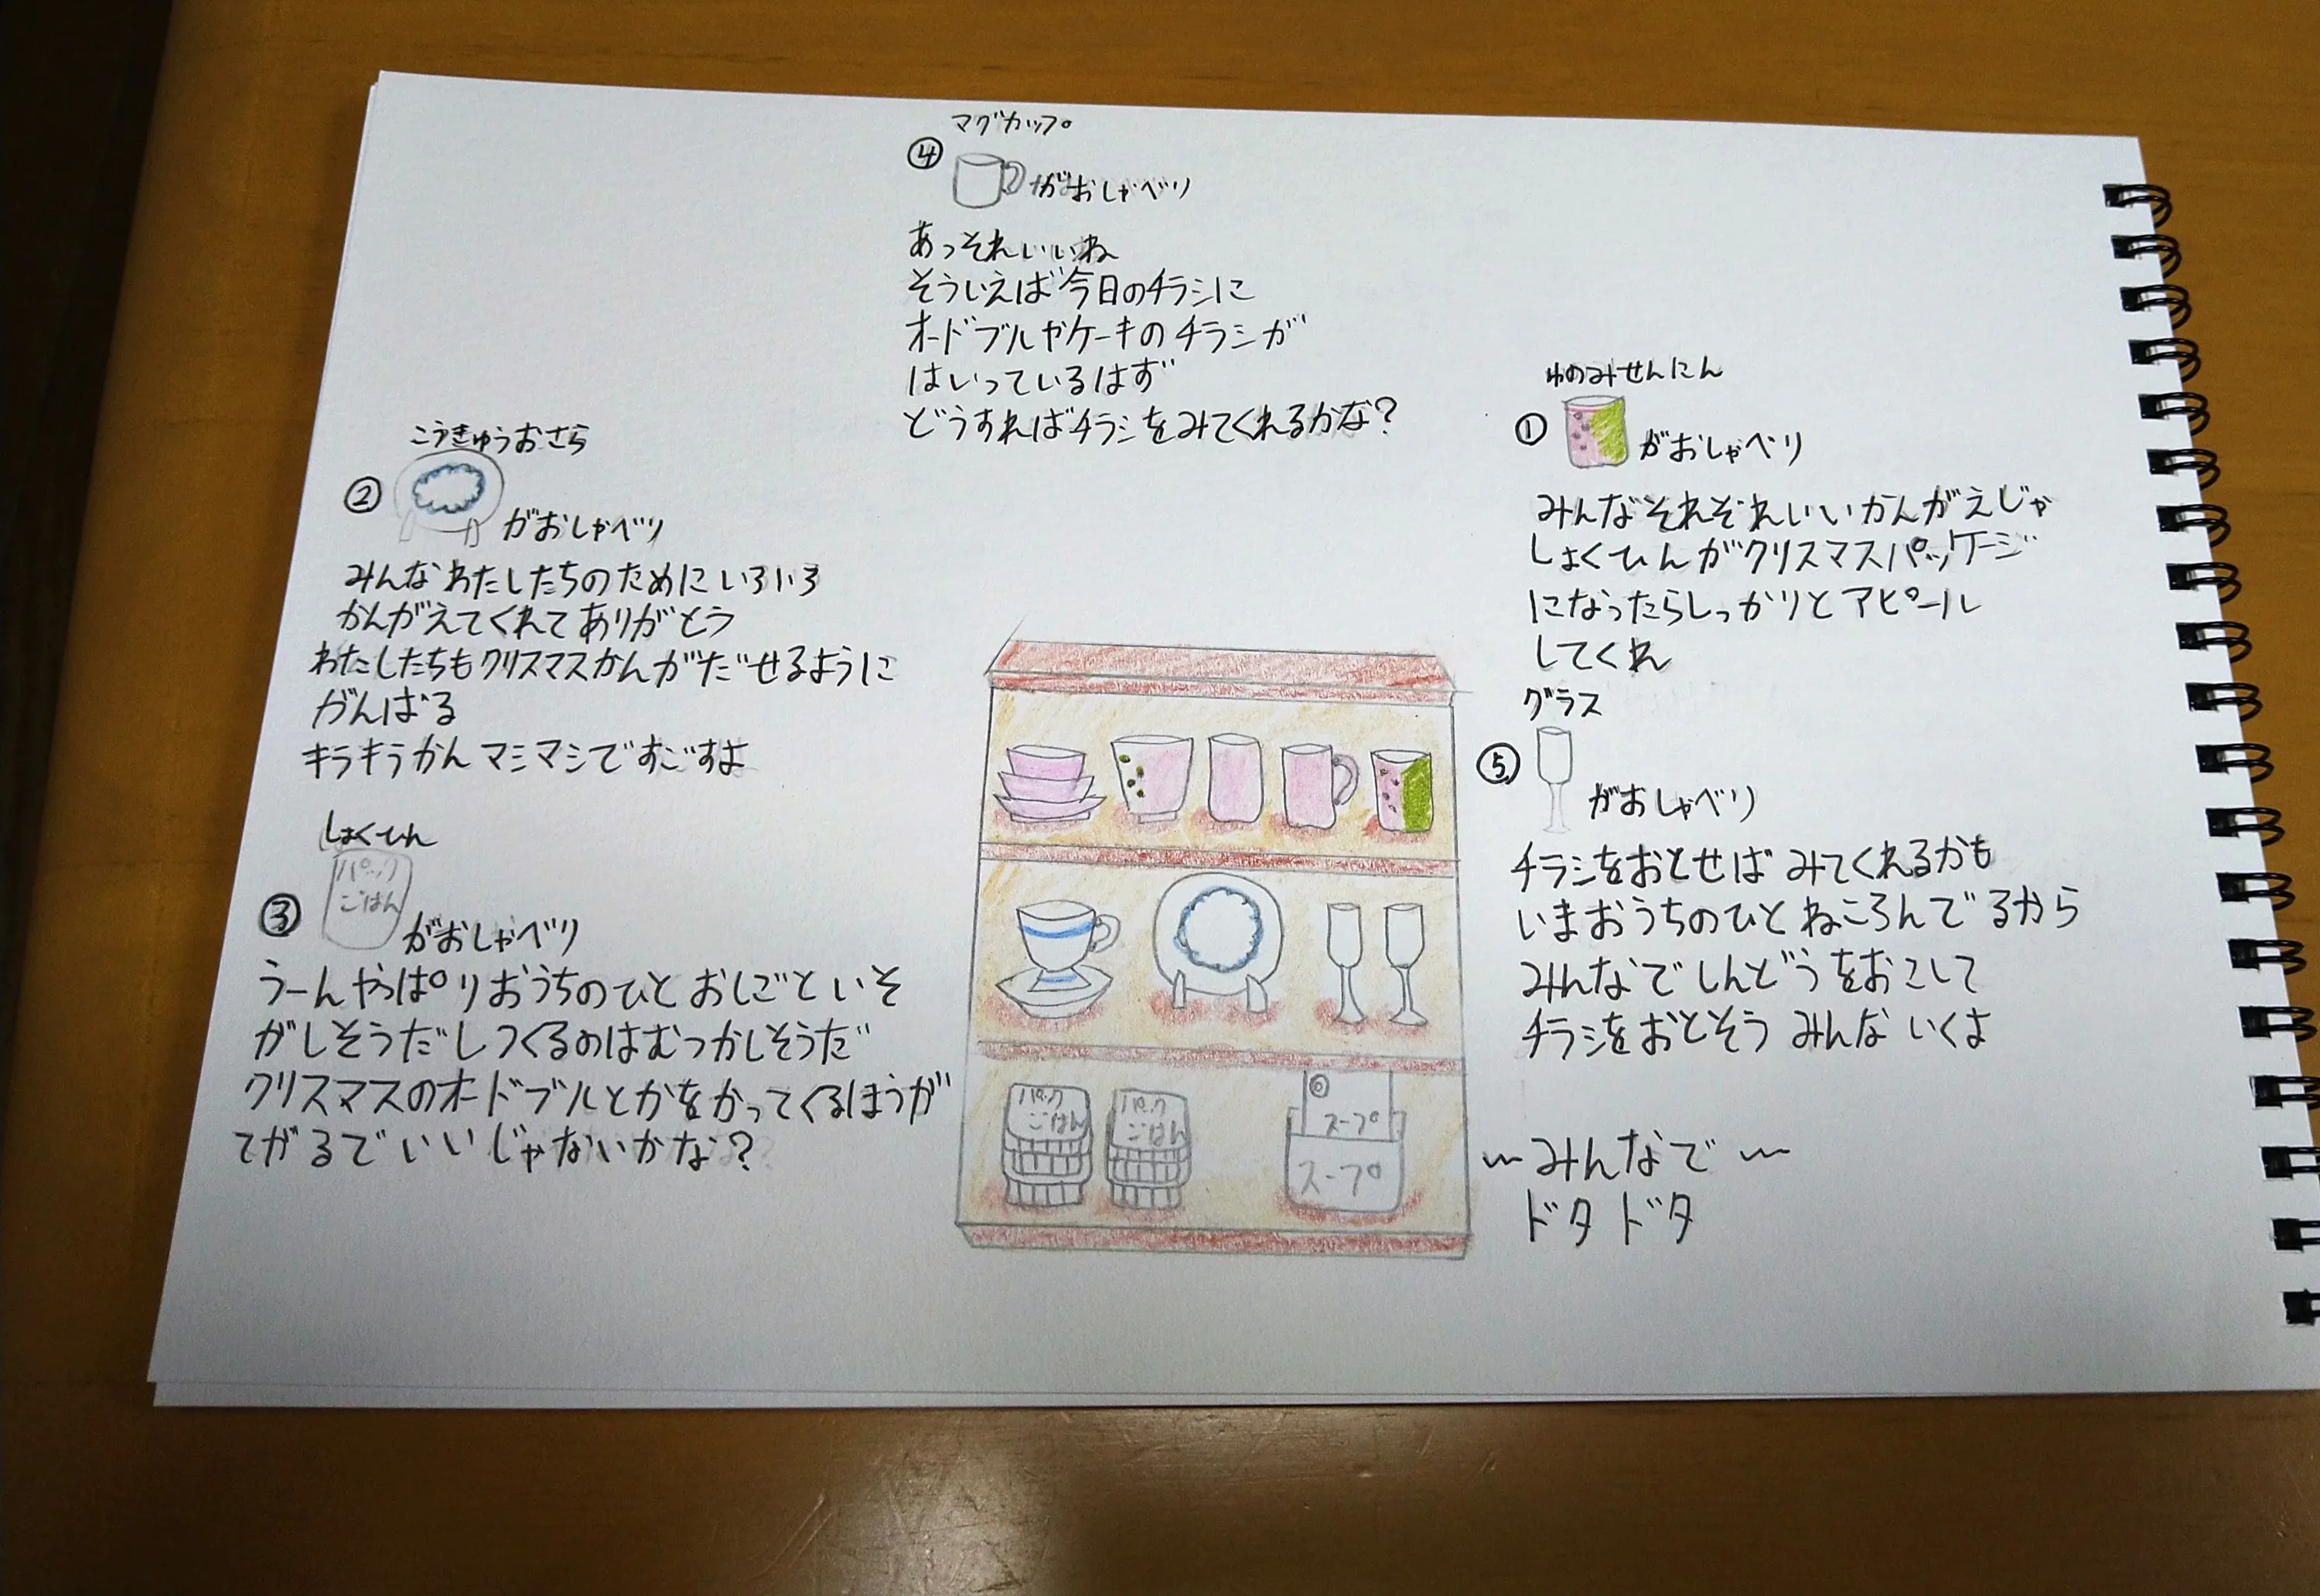 ゆのみせんにん
①がおしゃべり
みんなそれぞれいいかんがえじゃ
しょくひんがクリスマスパッケージ
になったらしっかりとアピール
してくれ
こうきゅうおさら
②がおしゃべり
みんなわたしたちのためにいろいろ
かんがえてくれてありがとう
わたしたちもクリスマスかんがだせるように
がんばる
キラキラかんマシマシですごすよ
しょくひん
パック
ごはん
③がおしゃべり
うーんやっぱりおうちのひとおしごといそ
がしそうだしつくるのはむつかしそうだ
クリスマスのオードブルとかをかってくるほうが
てがるでいいじゃないかな?
マグカップ
④がおしゃべり
あっそれいいね
そういえば今日のチラシに
オードブルやケーキのチラシが
はいっているはず
どうすればチラシをみてくれるかな?
グラス
⑤がおしゃべり
チラシをおとせばみてくれるかも
いまおうちのひとねころんでるから
みんなでしんどうをおこして
チラシをおとそうみんないくよ
〜みんなで〜
ドタドタ
パック
ごはん
パック
ごはん
スープ
スープ